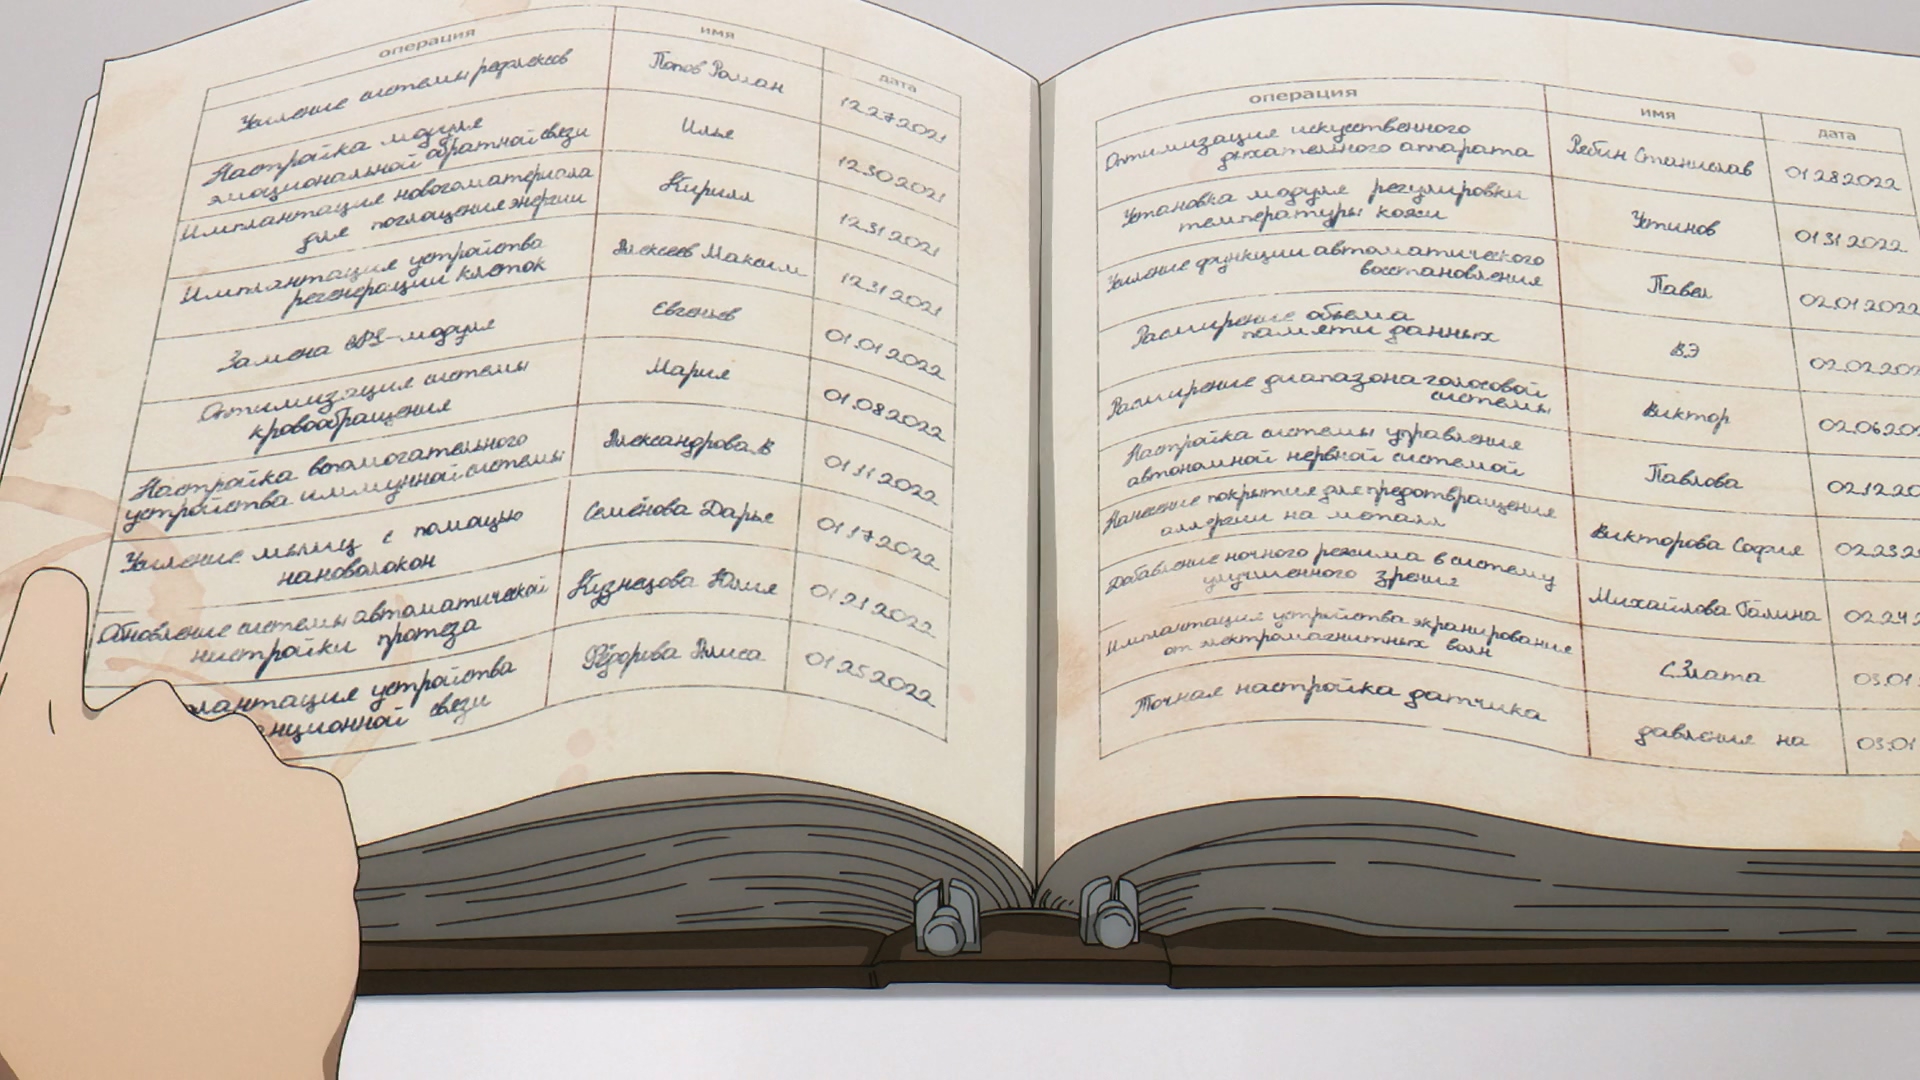 операция имя дата
Усиление системы рефлексов Попов Роман 12.27.2021
Настройка модуля
эмоциональной обратной связи Илья 12.30.2021
Имплантация нового материала
для поглощения энергии Кирилл 12.31.2021
Имплантация устройства
регенерации клеток Алексеев Максим 12.31.2021
Замена GPS-модуля Евгеньев 01.01.2022
Оптимизация системы
кровообращения Мария 01.08.2022
Настройка вспомогательного
устройства иммунной системы Александрова.В 01.11.2022
Усиление мышц с помощью
нановолокон Семёнова Дарья 01.17.2022
Обновление системы автоматической
настройки протеза Кузнецова Юлия 01.21.2022
плантация устройства
анционной связи Фёдорова Алиса 01.25.2022
операция имя дата
Оптимизация искусственного
дыхательного аппарата Рябин Станислав 01.28.2022
Установка модуля регулировки
температуры кожи Устинов 01.31.2022
Усиление функции автоматического
восстановления Павел 02.01.2022
Расширение объема
памяти данных В.Э 02.02.202
Расширение диапазона голосовой
системы Виктор 02.06.20
Настройка системы управления
автономной нервной системой Павлова 02.12.20
Нанесение покрытия для предотвращения
аллергии на металл Викторова София 02.23.2
Добавление ночного режима в систему
улучшенного зрения Михайлова Галина 02.24.2
Имплантация устройства экранирования
от электромагнитных волн С.Злата 03.01
Точная настройка датчика давления на 03.01